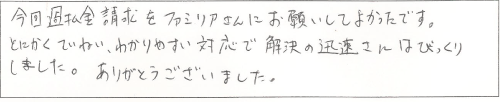 今回過払金請求をファミリアさんにお願いしてよかったです。
とにかくていねい、わかりやすい対応で解決の迅速さにはびっくり
しました。ありがとうございました。